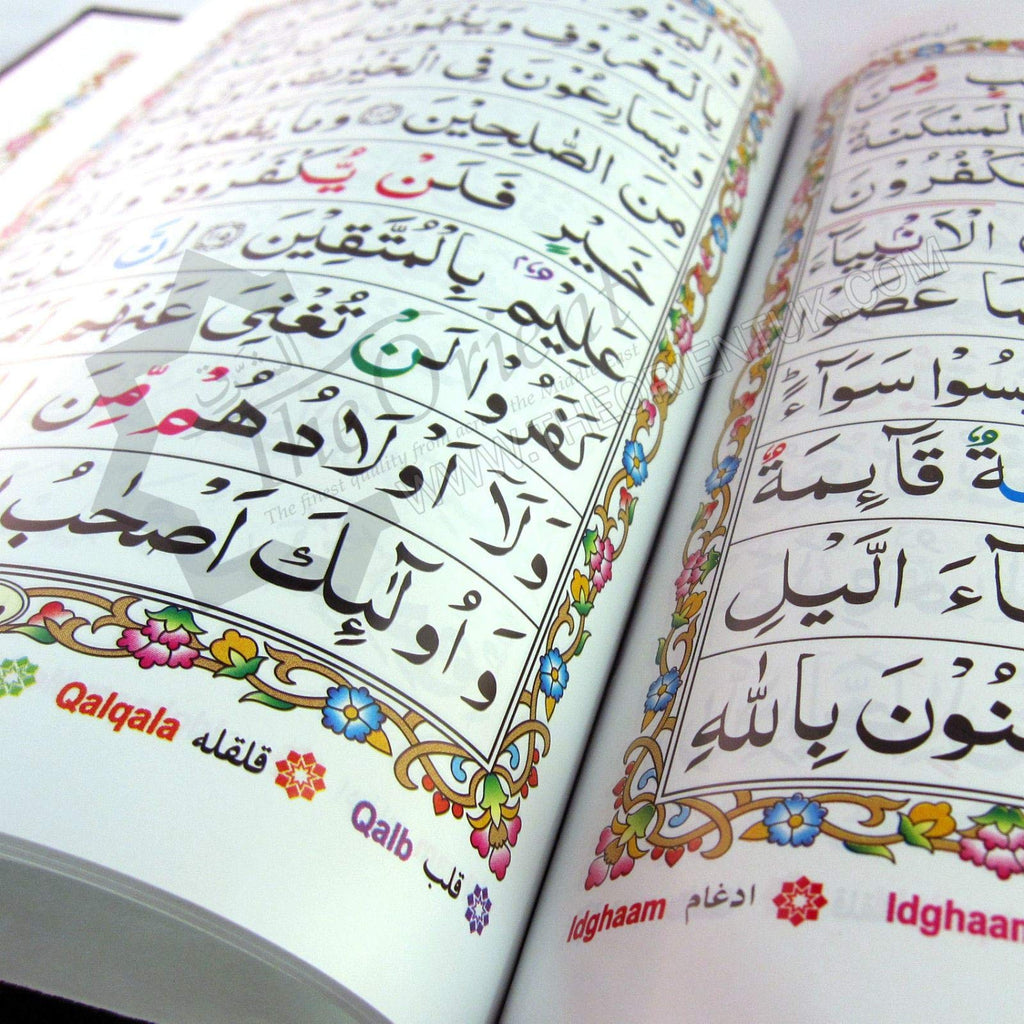 وَالْيَوْمِ
بِالْمَعْرُوْفِ وَيَنْهَوْنَ
وَيُسَارِعُوْنَ فِى الْخَيْرٰتِ
مِنَ الصّٰلِحِيْنَ وَمَا يَفْعَلُوْا
خَيْرٍ فَلَنْ يُّكْفَرُوْهُ
عَلِيْمٌۢ بِالْمُتَّقِيْنَ اِنَّ الَّذِيْنَ
كَفَرُوْا لَنْ تُغْنِىَ عَنْهُمْ
وَلَآ اَوْلَادُهُمْ مِّنَ
وَاُولٰٓئِكَ اَصْحٰبُ
Qalqala قلقله
Qalb قلب
مِّنَ
الْمَسْكَنَةُ
يَكْفُرُوْنَ
الْاَنْۢبِيَآءَ
بِمَا عَصَوْا
لَيْسُوْا سَوَآءً
قَآئِمَةٌ
اٰنَآءَ الَّيْلِ
يُؤْمِنُوْنَ بِاللّٰهِ
Idghaam ادغام
Idghaam
The Orient
The finest quality from across the Middle East
WWW.THEORIENTUK.COM